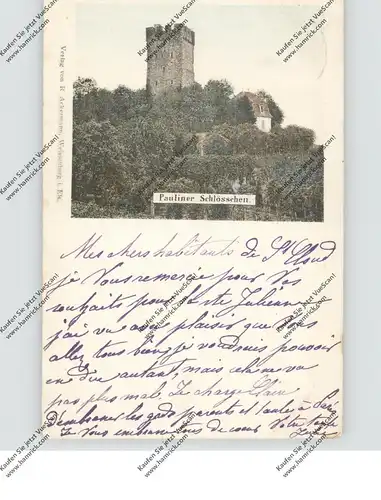 Pauliner Schlösschen.
Verlag von R. Ackermann, Weissenburg i. Els.
Mes chers habitants de St Cloud
je Vous remercie pour Vos
souhaits pour la Ste Julienne
j'ai vu avec plaisir que Vous
allez tous bien, je voudrais pouvoir
en dire autant, mais cela ne va
pas plus mal. Je charge
D'embrasser les grands parents et
Je Vous embrasse tous de coeur Votre
Kaufen Sie jetzt VueScan!
www.hamrick.com